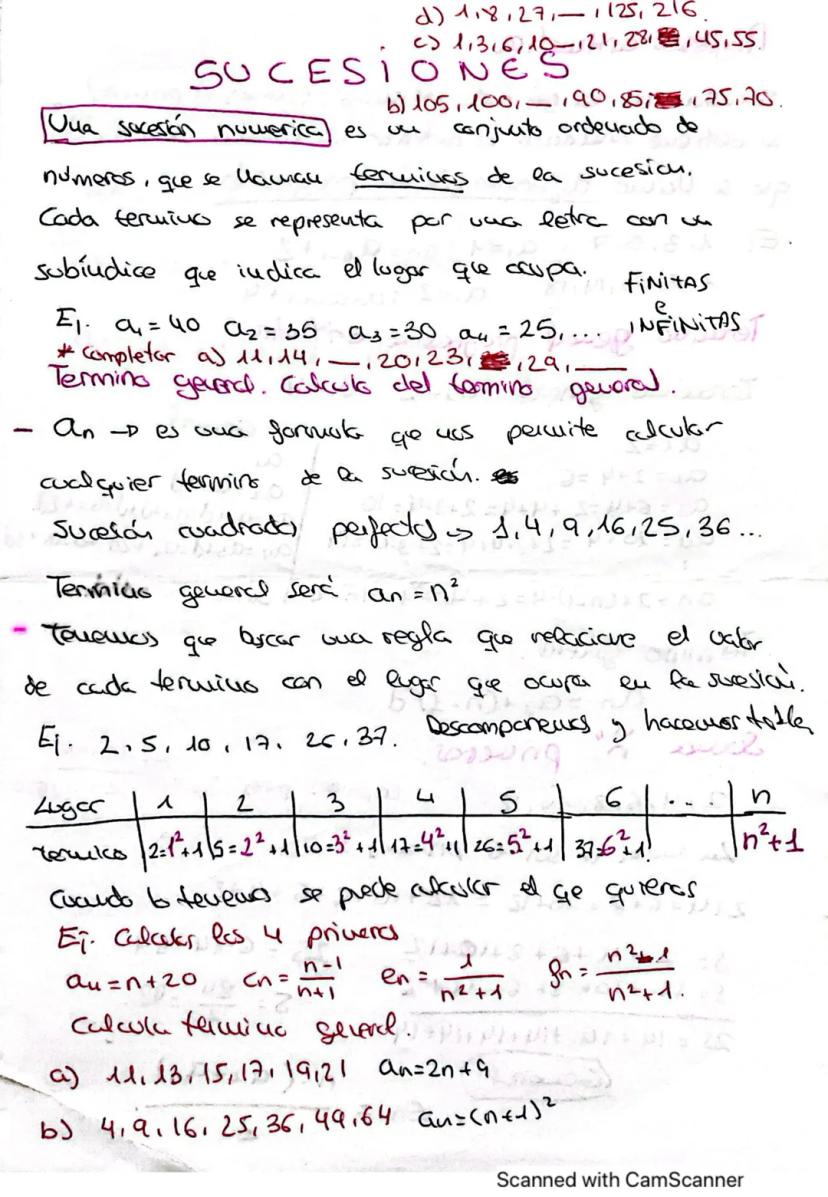 d) 1,8,27,—,125,216.
c) 1,3,6,10—,21,28,45,55.
SUCESIONES
b) 105,100,—,90,85,75,70.
Una sucesión numerica es un conjunto ordenado de
números, que se llaman terminos de la sucesion.
Cada termino se representa por una letra con un
subíndice que indica el lugar que ocupa.
FINITAS
e
INFINITAS
Ej. a₁=40 a₂=35 a₃=30 a₄=25,...
* Completar a) 11,14,—,20,23,29,—
Termino general. Calculo del termino general.
- an → es una formula que nos permite calcular
cualquier termino de la sucesión.
Sucesión cuadrados perfectos → 1,4,9,16,25,36...
Termino general será an = n²
- Tenemos que buscar una regla que relacione el valor
de cada termino con el lugar que ocupa en la sucesión.
Ej. 2,5,10,17,26,37. Descomponemos y hacemos tabla
Lugar | 1 | 2 | 3 | 4 | 5 | 6 | ... | n
termino | 2=1²+1 | 5=2²+1 | 10=3²+1 | 17=4²+1 | 26=5²+1 | 37=6²+1 | | n²+1
Cuando lo tenemos se puede calcular el qe quieras
Ej. Calcular los 4 primeros
an=n+20 cn=(n-1)/(n+1) en=1/(n²+1) fn=(n²-1)/(n²+1).
Calcula termino general.
a) 11,13,15,17,19,21 an=2n+9
b) 4,9,16,25,36,49,64 an=(n+1)²
Scanned with CamScanner